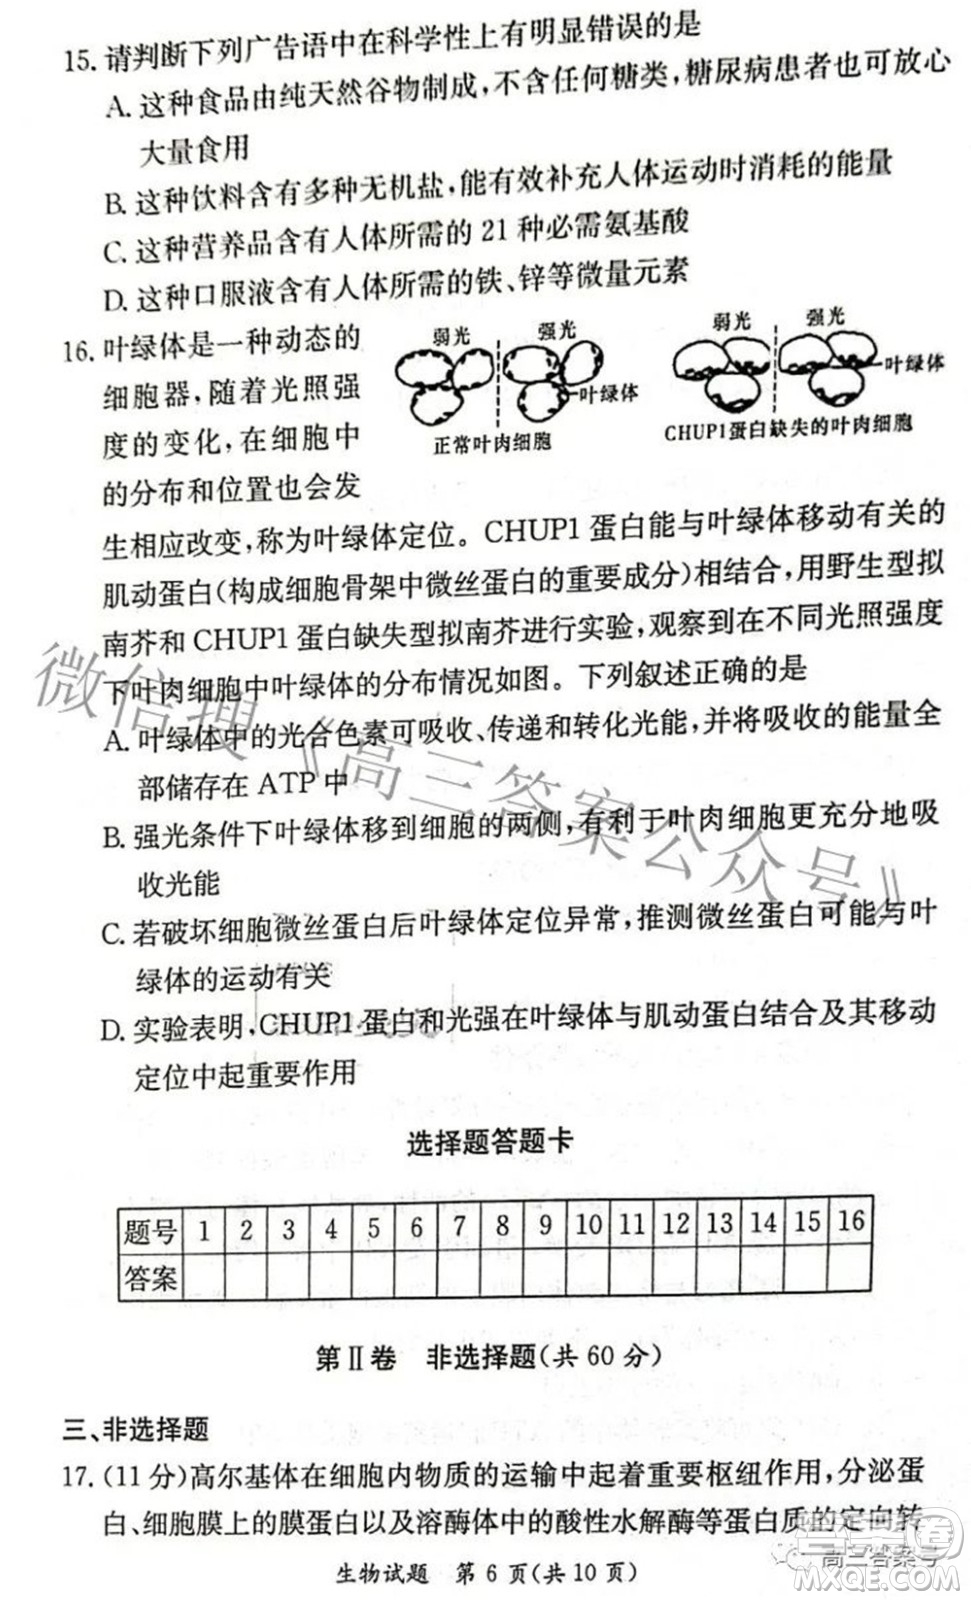 15. 请判断下列广告语中在科学性上有明显错误的是
A. 这种食品由纯天然谷物制成,不含任何糖类,糖尿病患者也可放心
大量食用
B. 这种饮料含有多种无机盐,能有效补充人体运动时消耗的能量
C. 这种营养品含有人体所需的 21 种必需氨基酸
D. 这种口服液含有人体所需的铁、锌等微量元素
16. 叶绿体是一种动态的
细胞器,随着光照强
度的变化,在细胞中
的分布和位置也会发
弱光 强光
叶绿体
正常叶肉细胞
弱光 强光
叶绿体
CHUP1蛋白缺失的叶肉细胞
生相应改变,称为叶绿体定位。CHUP1 蛋白能与叶绿体移动有关的
肌动蛋白(构成细胞骨架中微丝蛋白的重要成分)相结合,用野生型拟
南芥和 CHUP1 蛋白缺失型拟南芥进行实验,观察到在不同光照强度
下叶肉细胞中叶绿体的分布情况如图。下列叙述正确的是
A. 叶绿体中的光合色素可吸收、传递和转化光能,并将吸收的能量全
部储存在 ATP 中
B. 强光条件下叶绿体移到细胞的两侧,有利于叶肉细胞更充分地吸
收光能
C. 若破坏细胞微丝蛋白后叶绿体定位异常,推测微丝蛋白可能与叶
绿体的运动有关
D. 实验表明,CHUP1 蛋白和光强在叶绿体与肌动蛋白结合及其移动
定位中起重要作用
微信搜《高三答案公众号》
选择题答题卡
题号 1 2 3 4 5 6 7 8 9 10 11 12 13 14 15 16
答案
第Ⅱ卷 非选择题(共 60 分)
三、非选择题
17. (11 分)高尔基体在细胞内物质的运输中起着重要枢纽作用,分泌蛋
白、细胞膜上的膜蛋白以及溶酶体中的酸性水解酶等蛋白质的定向转
生物试题 第 6 页(共 10 页)
高三答案号
MXQE.COM